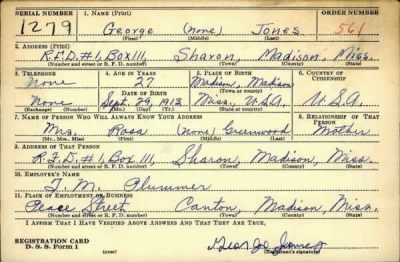 SERIAL NUMBER 1. NAME (Print) ORDER NUMBER
1279 George (none) Jones 561
(First) (Middle) (Last)
2. ADDRESS (Print)
R.F.D. #1, Box 111, Sharon, Madison, Miss.
(Number and street or R. F. D. number) (Town) (County) (State)
3. TELEPHONE 4. AGE IN YEARS 5. PLACE OF BIRTH 6. COUNTRY OF CITIZENSHIP
None 27 Madison, Madison
DATE OF BIRTH (Town or county)
None Sept. 29, 1913 Miss., U.S.A. U.S.A.
(Exchange) (Number) (Mo.) (Day) (Yr.) (State or country)
7. NAME OF PERSON WHO WILL ALWAYS KNOW YOUR ADDRESS 8. RELATIONSHIP OF THAT PERSON
Mrs. Rosa (none) Greenwood Mother
(Mr., Mrs., Miss) (First) (Middle) (Last)
9. ADDRESS OF THAT PERSON
R.F.D. #1, Box 111, Sharon, Madison, Miss.
(Number and street or R. F. D. number) (Town) (County) (State)
10. EMPLOYER'S NAME
Plummer
11. PLACE OF EMPLOYMENT OR BUSINESS
Peace Street Canton, Madison, Miss.
(Number and street or R. F. D. number) (Town) (County) (State)
I AFFIRM THAT I HAVE VERIFIED ABOVE ANSWERS AND THAT THEY ARE TRUE.
REGISTRATION CARD
D. S. S. Form 1 (over) (Registrant's signature)